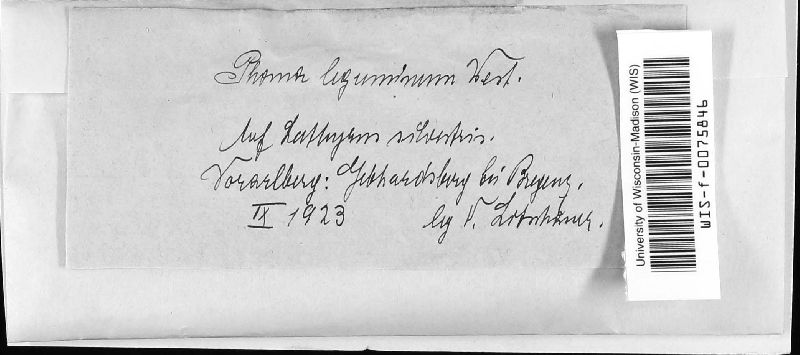 Phoma leguminum West.
Auf Lathyrus silvestris.
Vorarlberg: Gebhardsberg bei Bregenz.
IX 1923 leg V.
University of Wisconsin-Madison (WIS)
WIS-f-0075846